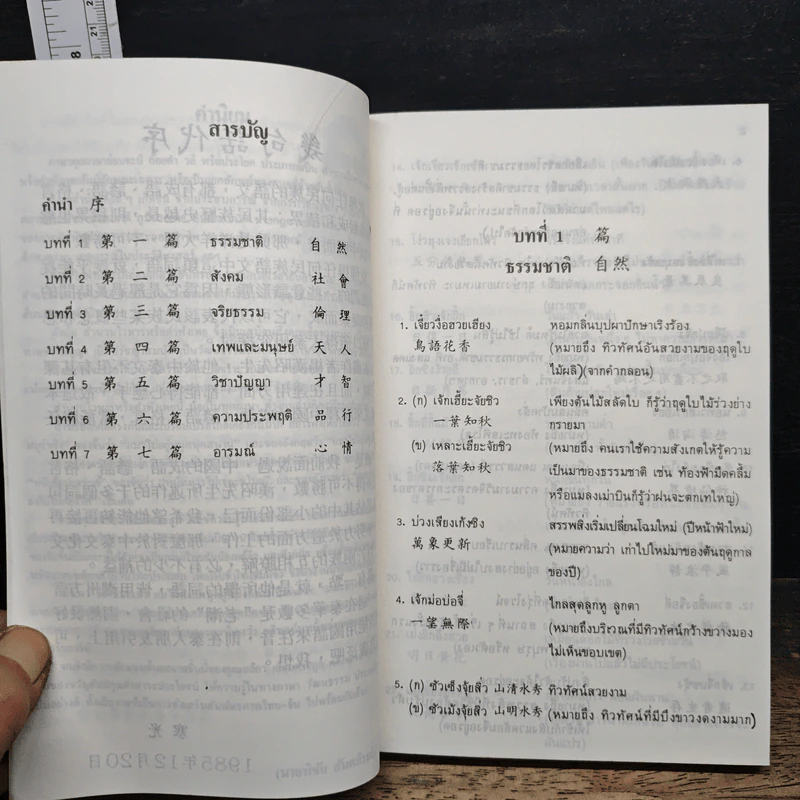 สารบัญ
คำนำ 序
บทที่ 1 第 一 篇 ธรรมชาติ 自 然
บทที่ 2 第 二 篇 สังคม 社 會
บทที่ 3 第 三 篇 จริยธรรม 倫 理
บทที่ 4 第 四 篇 เทพและมนุษย์ 天 人
บทที่ 5 第 五 篇 วิชาปัญญา 才 智
บทที่ 6 第 六 篇 ความประพฤติ 品 行
บทที่ 7 第 七 篇 อารมณ์ 心 情
บทที่ 1 篇
ธรรมชาติ 自 然
1. เจี้ยวงื่อฮวยเฮียง หอมกลิ่นบุปผาปักษาเริงร้อง
鳥語花香 (หมายถึง ทิวทัศน์อันสวยงามของฤดูใบ
ไม้ผลิ)(จากคำกลอน)
2. (ก) เจ้กเฮี้ยะจัยชิว เพียงต้นไม้สลัดใบ ก็รู้ว่าฤดูใบไม้ร่วงย่าง
一葉知秋 กรายมา
(ข) เหลาะเฮี้ยะจัยชิว (หมายถึง คนเราใช้ความสังเกตให้รู้ความ
落葉知秋 เป็นมาของธรรมชาติ เช่น ท้องฟ้ามืดคลื้ม
หรือแมลงเม่าบินก็รู้ว่าฝนจะตกเทใหญ่)
3. บ่วงเสี่ยงเก้งซิง สรรพสิ่งเริ่มเปลี่ยนโฉมใหม่ (ปีหน้าฟ้าใหม่)
萬象更新 (หมายความว่า เก่าไปใหม่มาของต้นฤดูกาล
ของปี)
4. เจ้กม่อบ่อจี่ ไกลสุดลูกหู ลูกตา
一望無際 (หมายถึงบริเวณที่มีทิวทัศน์กว้างขวางมอง
ไม่เห็นขอบเขต)
5. (ก) ซัวเช็งจุ้ยสิ่ว 山清水秀 ทิวทัศน์สวยงาม
(ข) ซัวเม้งจุ้ยสิ่ว 山明水秀 (หมายถึง ทิวทัศน์ที่มีบึงขาวงดงามมาก)